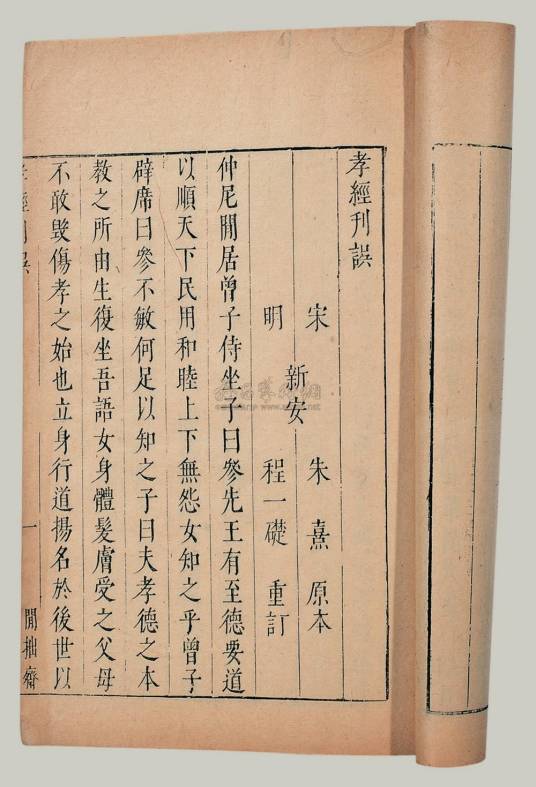 孝經刊誤
宋 朱熹 原本
新安
明 程一礎 重訂
仲尼閒居曾子侍坐子曰參先王有至德要道
以順天下民用和睦上下無怨女知之乎曾子
辟席曰參不敏何足以知之子曰夫孝德之本
教之所由生復坐吾語女身體髮膚受之父母
不敢毀傷孝之始也立身行道揚名於後世以
孝經刊誤 一 閒拙齋